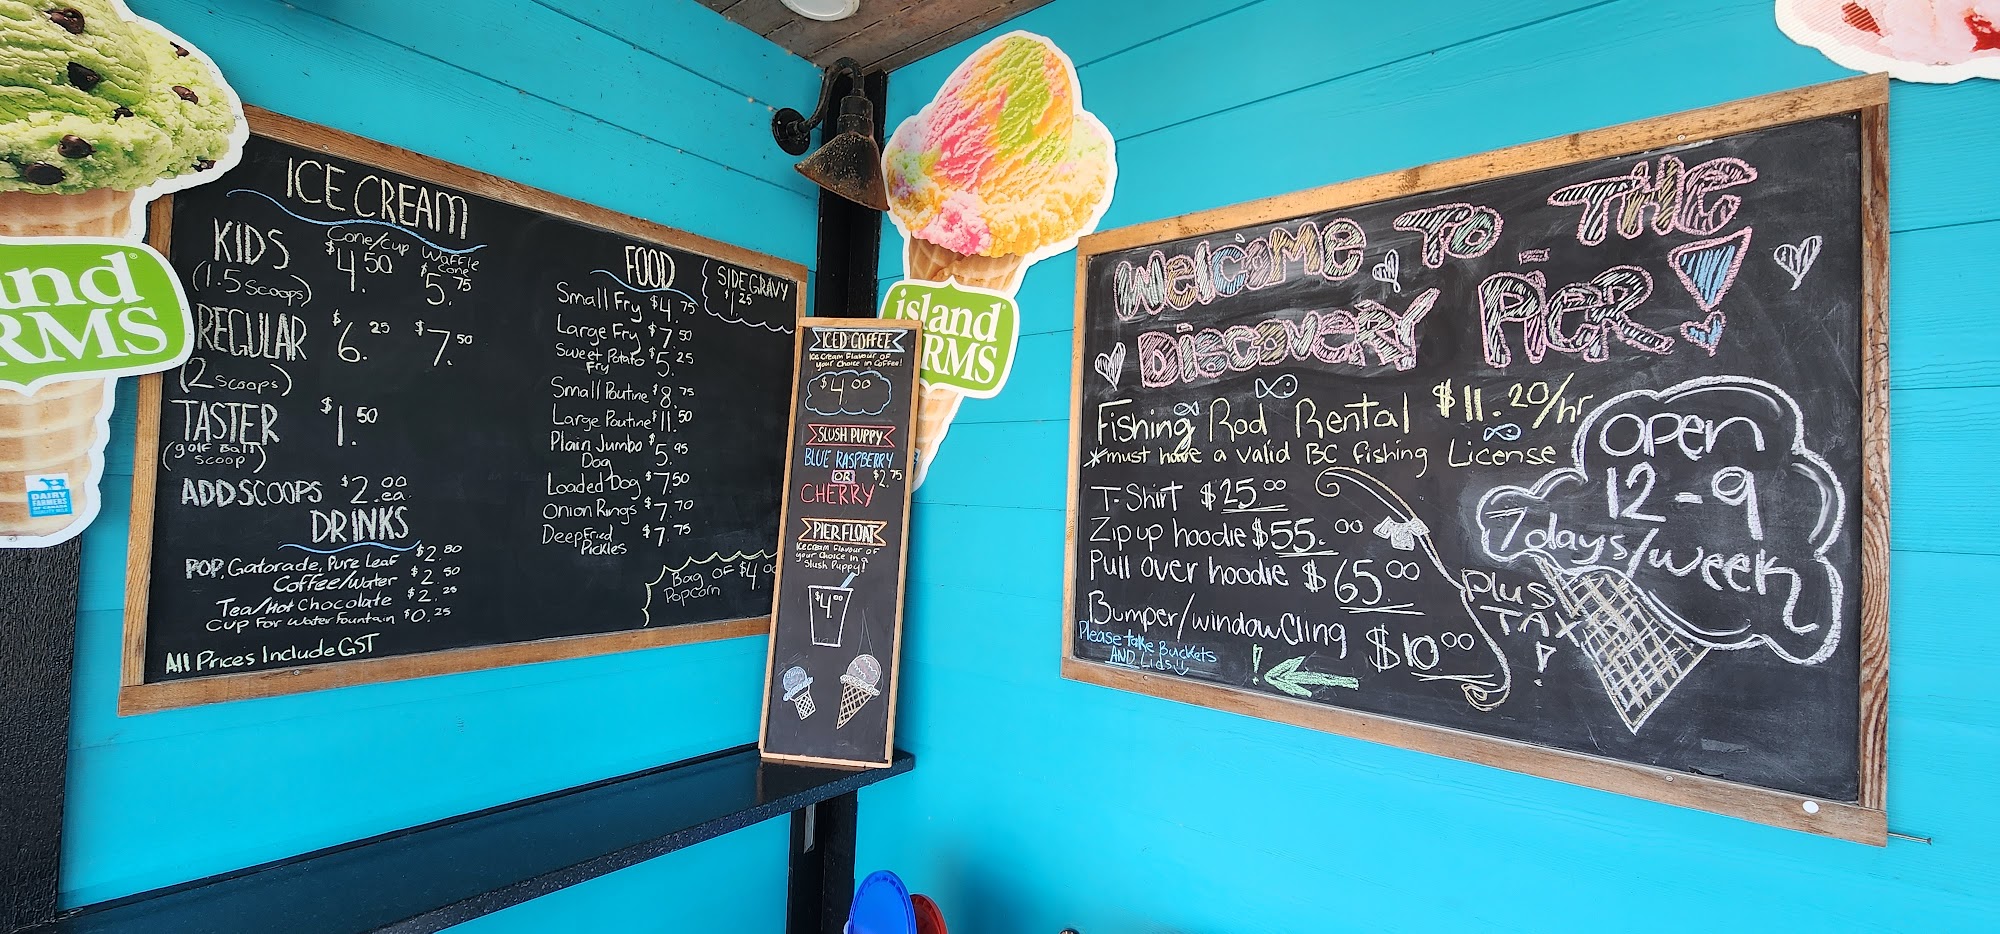 ICE CREAM
Cone/cup Waffle cone
KIDS $4.50 $5.75
(1.5 scoops)
REGULAR $6.25 $7.50
(2 scoops)
TASTER $1.50
(golf ball scoop)
ADD SCOOPS $2.00 ea.
DRINKS
POP, Gatorade, Pure Leaf $2.80
Coffee/Water $2.50
Tea/Hot Chocolate $2.25
Cup For Water Fountain $0.25
All Prices Include GST
FOOD
SIDE GRAVY
$1.25
Small Fry $4.75
Large Fry $7.50
Sweet Potato Fry $5.25
Small Poutine $8.75
Large Poutine $11.50
Plain Jumbo Dog $5.95
Loaded Dog $7.50
Onion Rings $7.70
Deep Fried Pickles $7.75
Bag OF $4.00
Popcorn
ICED COFFEE
Ice Cream Flavour of
your Choice in Coffee!
$4.00
SLUSH PUPPY
BLUE RASPBERRY
OR $2.75
CHERRY
PIER FLOAT
Ice Cream Flavour of
your Choice in a
Slush Puppy!
$4.00
Welcome To THE
Discovery Pier!
Fishing Rod Rental $11.20/hr
*must have a valid BC fishing License
T-Shirt $25.00
Zip up hoodie $55.00
Pull over hoodie $65.00
Bumper/window Cling $10.00
Plus
TAX!
Please take Buckets
AND Lids!!
!
OPEN
12-9
7days/week
island
RMS
nd
RMS
DAIRY
FARMERS
OF CANADA